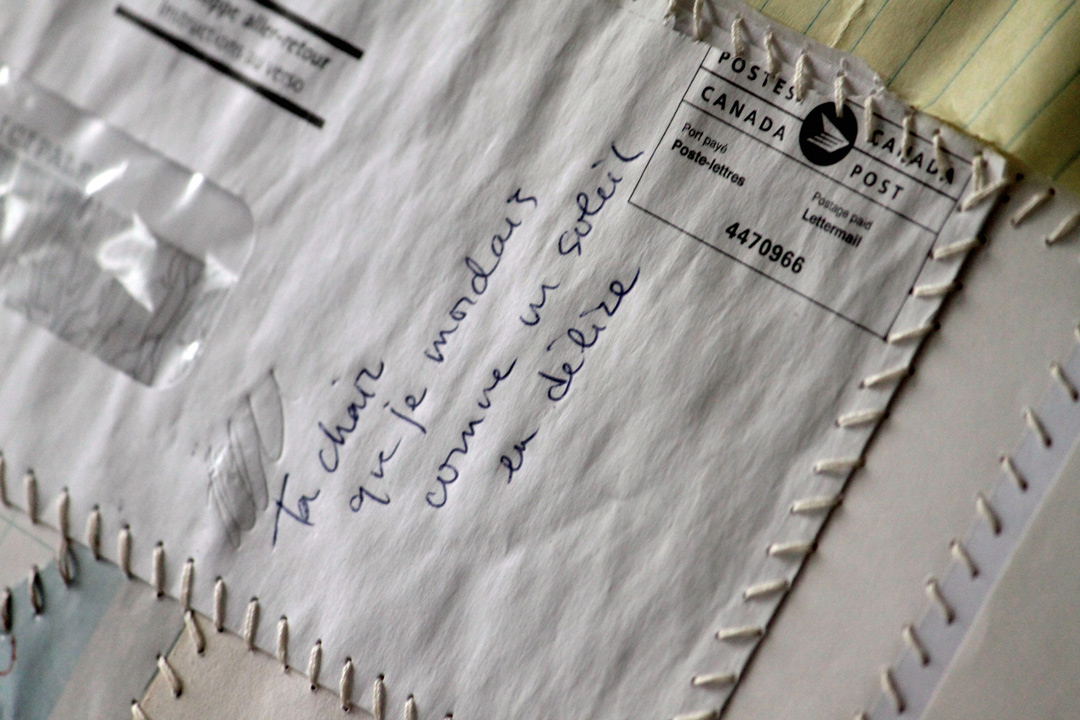 aller-retour
instructions au verso
POSTES CANADA
CANADA POST
Port payé
Poste-lettres
Postage paid
Lettermail
4470966
ta chair
que je mordais
comme un soleil
en délire